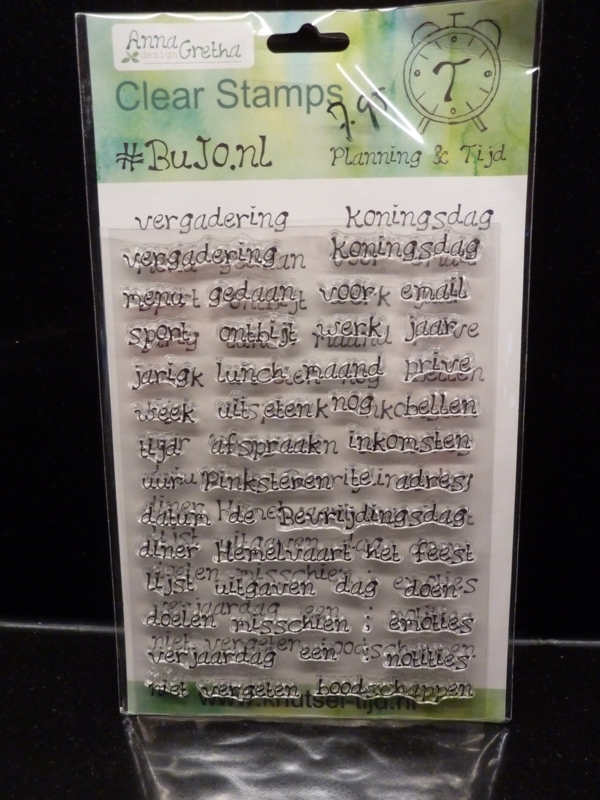 Anna
design Gretha
Clear Stamps
7.95
#BuJo.nl
Planning & Tijd
vergadering koningsdag
vergadering koningsdag
menu gedaan voor email
sport ontbijt werk jaar
jarig lunch maand prive
week uitseten nog bellen
tijd afspraak inkomsten
uur Pinksteren adres
datum de Bevrijdingsdag
diner Hemelvaart het feest
lijst uitgaven dag doen
doelen misschien ; emoties
verjaardag een : notities
niet vergeten boodschappen
www.knutsel-tijd.nl